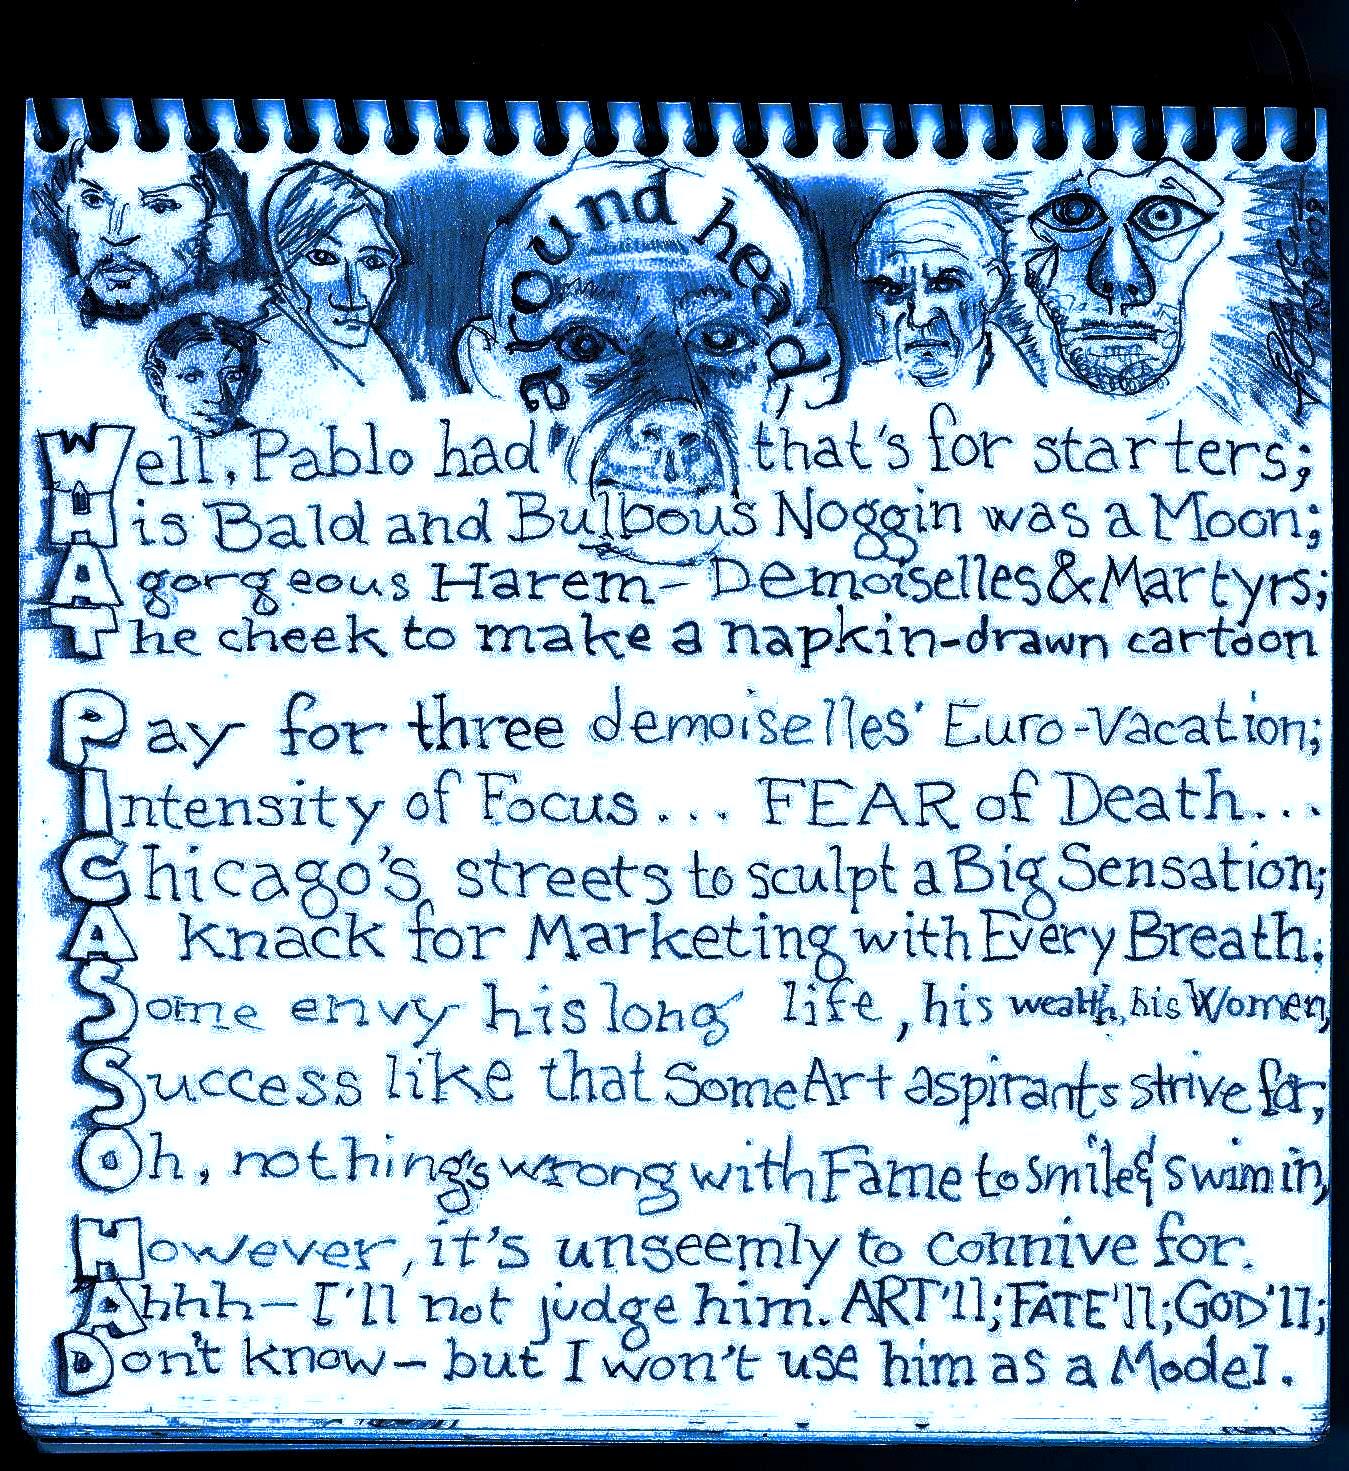 Well, Pablo had a round head, that's for starters;
His Bald and Bulbous Noggin was a Moon;
A gorgeous Harem – Demoiselles & Martyrs;
The cheek to make a napkin-drawn cartoon
Pay for three demoiselles' Euro-Vacation;
Intensity of Focus... FEAR of Death...
Chicago's streets to sculpt a Big Sensation;
A knack for Marketing with Every Breath.
Some envy his long life, his wealth, his Women,
Success like that Some Art aspirants strive for,
Oh, nothing's wrong with Fame to smile & swim in,
However, it's unseemly to connive for.
Ahhh – I'll not judge him. ART'll; FATE'll; GOD'll;
Don't know – but I won't use him as a Model.